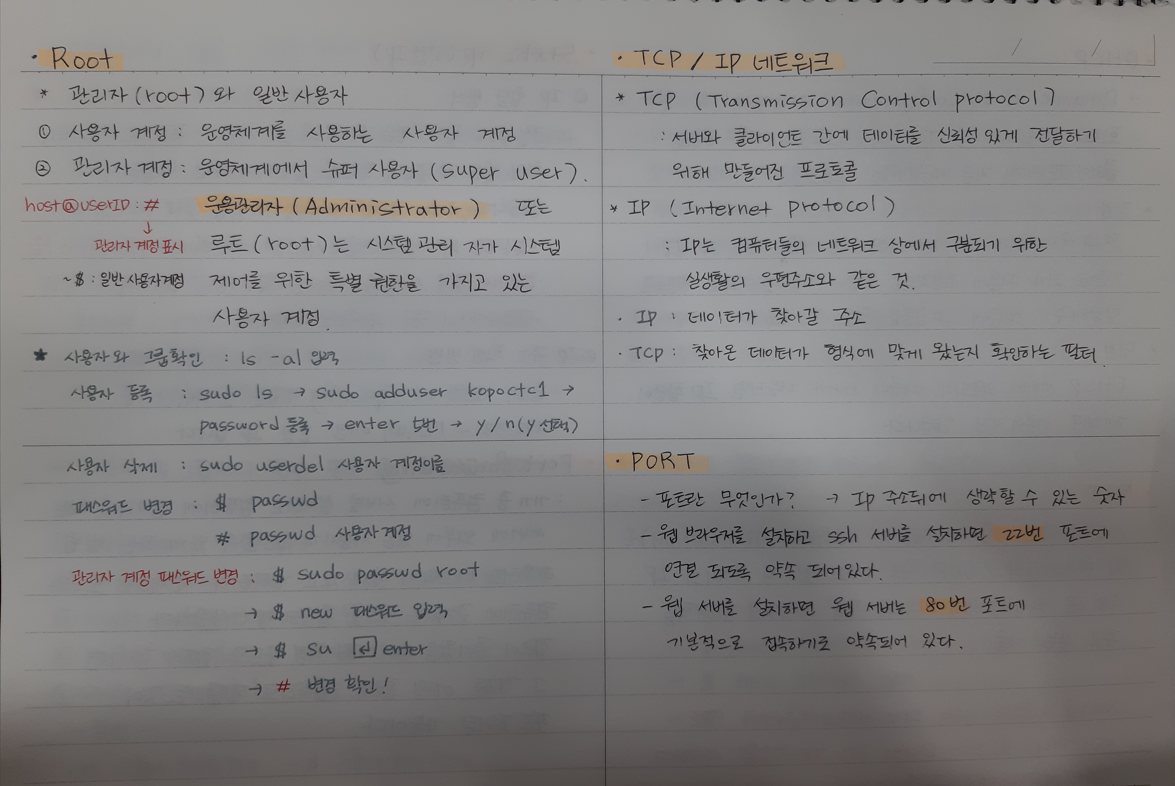 · Root
* 관리자(root)와 일반사용자
① 사용자 계정 : 운영체계를 사용하는 사용자 계정
② 관리자 계정 : 운영체계에서 슈퍼 사용자(super user).
host@userID : # 운용관리자(Administrator) 또는
↓
관리자 계정 표시 루트(root)는 시스템 관리 자가 시스템
~$ : 일반 사용자계정 제어를 위한 특별 권한을 가지고 있는
사용자 계정.
★ 사용자와 그룹확인 : ls -al 입력
사용자 등록 : sudo ls → sudo adduser kopoctc1 →
password 등록 → enter 5번 → y/n(y 선택)
사용자 삭제 : sudo userdel 사용자 계정이름
패스워드 변경 : $ passwd
# passwd 사용자 계정
관리자 계정 패스워드 변경 : $ sudo passwd root
→ $ new 패스워드 입력
→ $ su ↵ enter
→ # 변경 확인!
· TCP / IP 네트워크
* TCP (Transmission Control protocol)
: 서버와 클라이언트 간에 데이터를 신뢰성 있게 전달하기
위해 만들어진 프로토콜
* IP (Internet protocol)
: IP는 컴퓨터들의 네트워크 상에서 구분되기 위한
실생활의 우편주소와 같은 것.
· IP : 데이터가 찾아갈 주소
· TCP : 찾아온 데이터가 형식에 맞게 왔는지 확인하는 필터.
· PORT
- 포트란 무엇인가? → Ip 주소뒤에 생략할 수 있는 숫자
- 웹 브라우저를 설치하고 ssh 서버를 설치하면 22번 포트에
연결 되도록 약속 되어있다.
- 웹 서버를 설치하면 웹 서버는 80번 포트에
기본적으로 접속하기로 약속되어 있다.